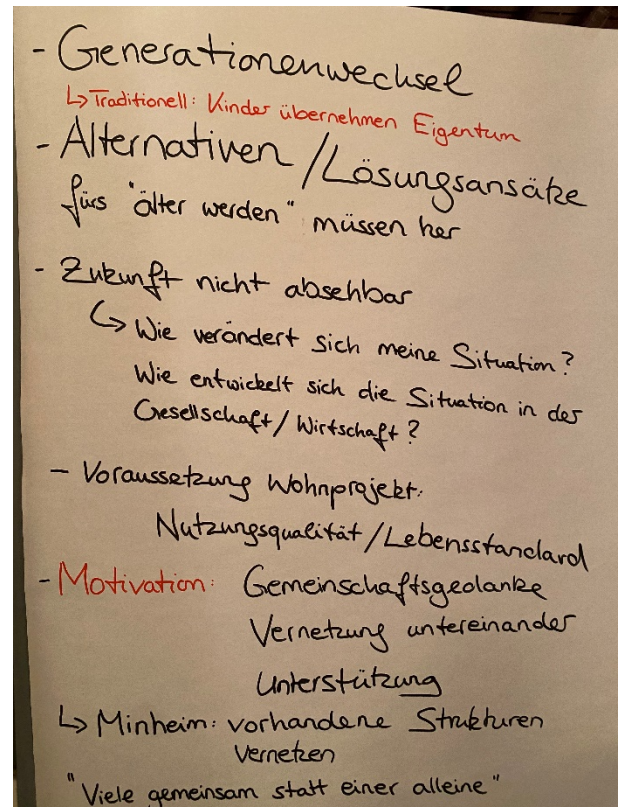 - Generationenwechsel
↳ Traditionell: Kinder übernehmen Eigentum
- Alternativen / Lösungsansätze
fürs "älter werden" müssen her
- Zukunft nicht absehbar
↳ Wie verändert sich meine Situation?
Wie entwickelt sich die Situation in der
Gesellschaft / Wirtschaft?
- Voraussetzung Wohnprojekt:
Nutzungsqualität / Lebensstandard
- Motivation: Gemeinschaftsgedanke
Vernetzung untereinander
Unterstützung
↳ Minheim: vorhandene Strukturen
vernetzen
"Viele gemeinsam statt einer alleine"